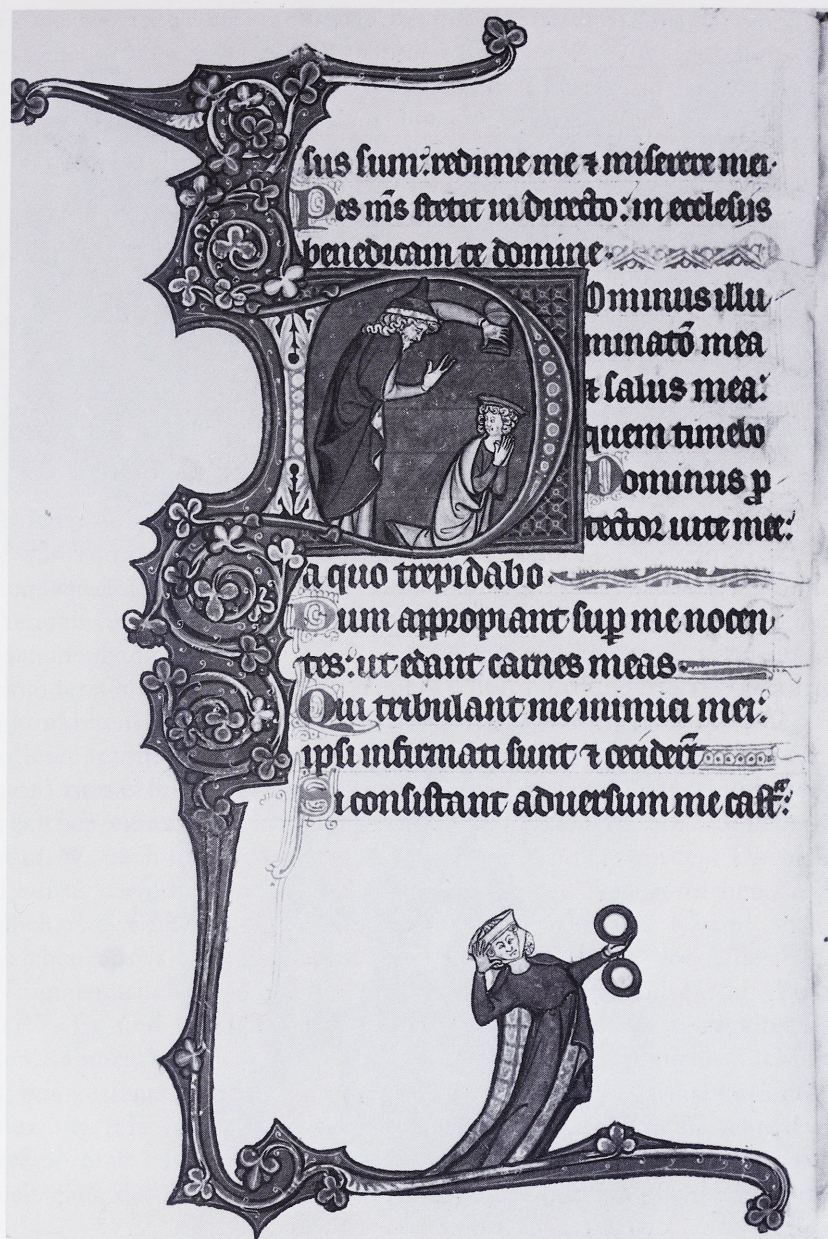 sus sum: redime me ⁊ miserere mei.
Pes m̅s stetit in directo: in ecclesijs
benedicam te domine.
Dominus illu
minatō mea
⁊ salus mea:
quem timebo
Dominus ꝓ
tector uite mee:
a quo trepidabo.
Dum appropiant sup̲ me nocen
tes: ut edant carnes meas.
Qui tribulant me inimici mei:
ipsi infirmati sunt ⁊ ceciderūt
Si consistant aduersum me castͬa: